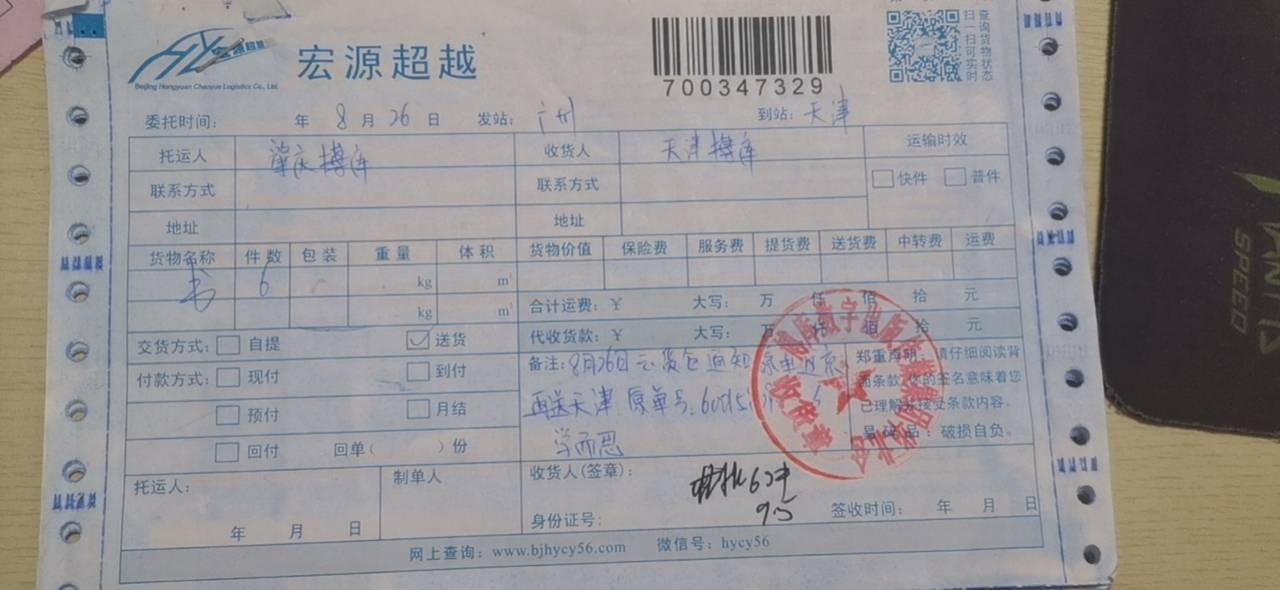 宏源超越
Beijing Hongyuan Chaoyue Logistics Co., Ltd.
700347329
扫一扫可实时
查询货物状态
委托时间： 年 8 月 26 日 发站： 广州 到站：天津
托运人 肇庆搏库 收货人 天津搏库 运输时效
联系方式 联系方式 快件 普件
地址 地址
货物名称 件数 包装 重量 体积 货物价值 保险费 服务费 提货费 送货费 中转费 运费
书 6 kg m³
kg m³
合计运费：￥ 大写： 万 仟 佰 拾 元
代收货款：￥ 大写： 万 仟 佰 拾 元
交货方式： 自提 送货
付款方式： 现付 到付
预付 月结
回付 回单( )份
备注：8月26日 通知
再送天津 原单号
学而思
郑重声明：请仔细阅读背
面条款，您的签名意味着您
已理解并接受条款内容。
易碎品：破损自负。
托运人： 制单人
年 月 日
收货人(签章)：
6件
9.5
身份证号： 签收时间： 年 月 日
网上查询：www.bjhycy56.com 微信号：hycy56
SPEED